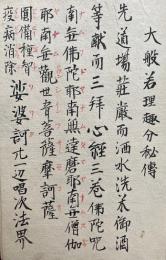 大般若理趣分秘傳
先道場莊嚴而洒水洗米御酒
等献而三拜心經三卷佛陀呪
南無佛陀耶南無達磨耶南無僧伽
耶南無觀世音菩薩摩訶薩
圓備種智
疫病消除
娑婆訶 一辺唱次法界